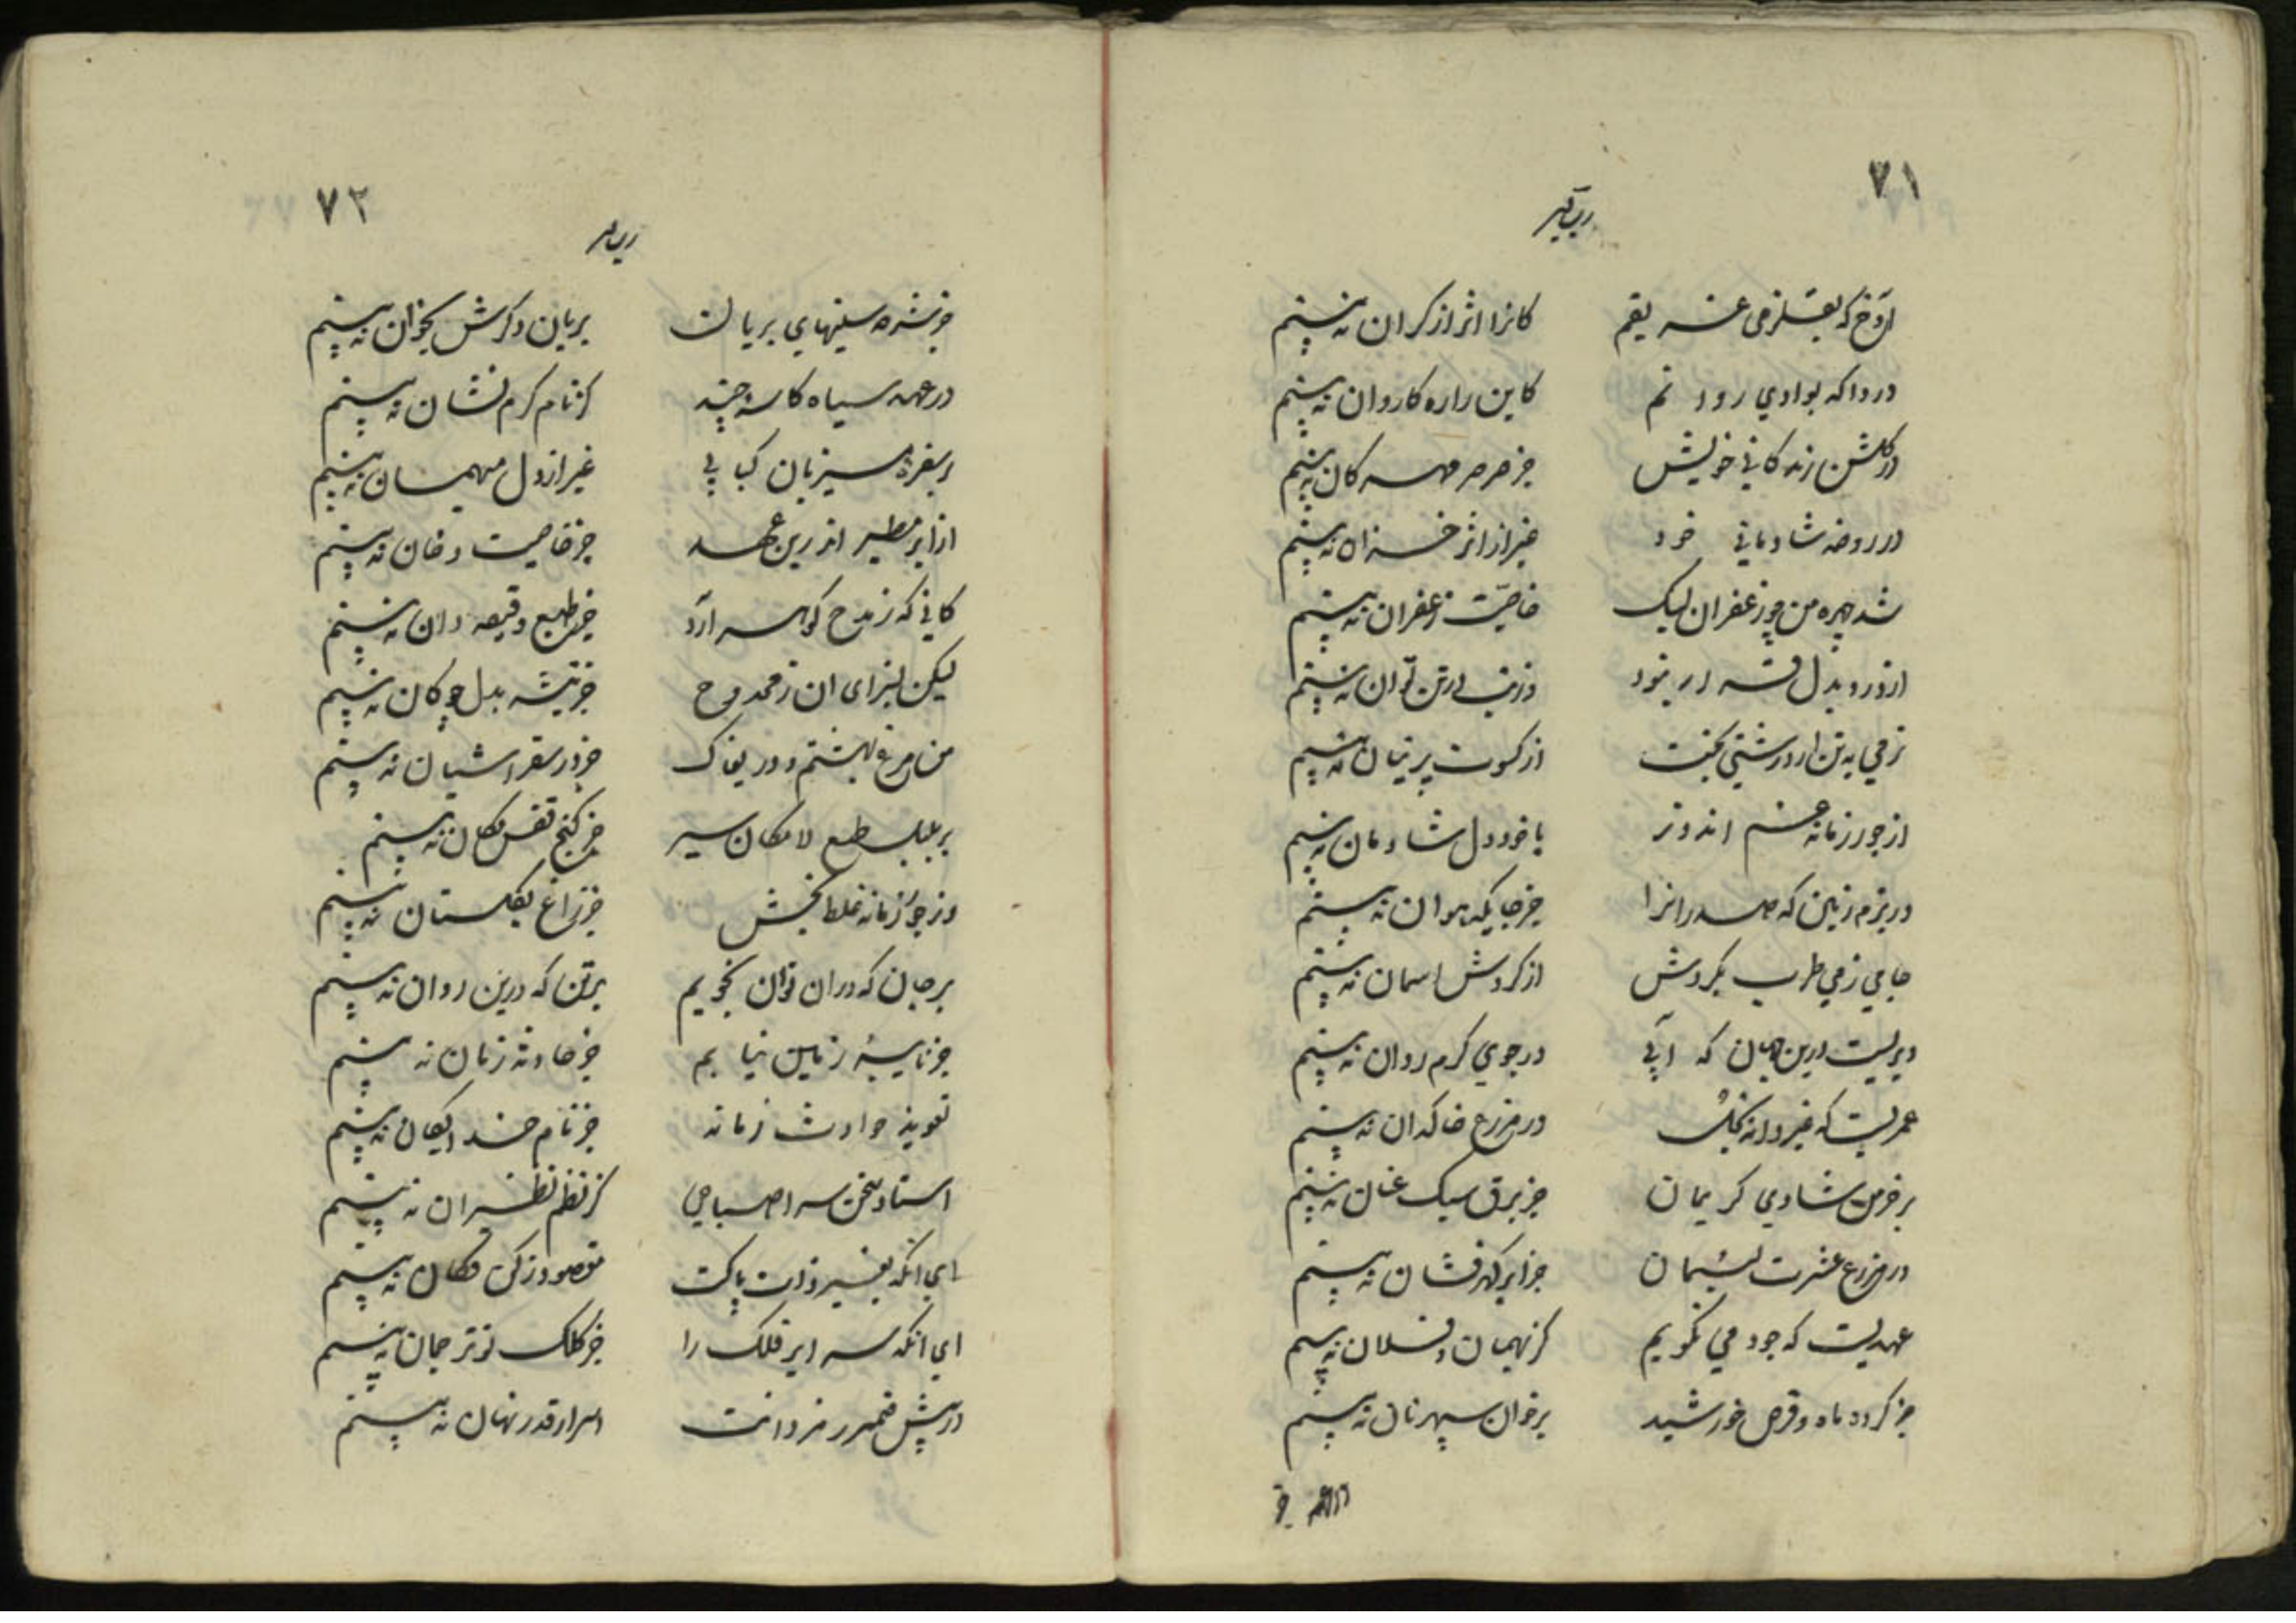 ۷۱
آوخ که بقلزمی غریقم کانرا اثر از کران نه بینم
دردا که بوادی رودم کاین را ره کاروان نه بینم
در گلشن زندگانی خویش جز صرصر مهرکان نه بینم
در روضه شادمانی خود غیر از اثر خزان نه بینم
شد چهره من چو زعفران لیک خاصیت زعفران نه بینم
از درد بدل قرار نبود وز ضعف در تن توان نه بینم
نرمی به تن از درشتی بخت از کسوت پرنیان نه بینم
از جور زمانه غم اندوز با خود دل شادمان نه بینم
در بزم زمین که صدر آنرا جز جایگه هوان نه بینم
جامی ز می طرب بگردش از کردش اسمان نه بینم
دیریست درین جهان که آبی در جوی کرم روان نه بینم
عمریست که خیر دانه در مزرع خاکدان نه بینم
بر خرمن شادی کریمان جز برق سبک عنان نه بینم
در مزرع عشرت لئیمان جز ابر گهرفشان نه بینم
عهدیست که جود می نگویم کز نهمان و فلان نه بینم
جز کرده ماه و قرص خورشید بر خوان سپهر نان نه بینم
۷۲
جز شره سینهای بریان بریان و کرش بخوان نه بینم
در عهد سیاه کاسه چند کز نام کرم نشان نه بینم
بر سفره میزبان کبابی غیر از دل میهمان نه بینم
از ابر مطیر اندرین عهد جز خاصیت دخان نه بینم
کانی که ز مدح گوهر آرد جز طبع دقیقه دان نه بینم
لیکن بسزای ان ز ممدوح جز تیشه بدل چو کان نه بینم
من مرغ بهشتم و دریغا ک جز در سقر اشیان نه بینم
بر بلبل طبع لامکان سیر جز کنج قفس مکان نه بینم
وز جور زمانه غلط بخش جز زاغ بگلستان نه بینم
بر جان که دران توان نجویم بر تن که درین روان نه بینم
جز نایبهٔ زمین نیابم جز حادثهٔ زمان نه بینم
تعویذ حوادث زمانه جز نام خدایگان نه بینم
استاد سخن سرا صباحی کز نظم نظیر ان نه بینم
ای انکه بغیر ذات پاکت مقصود ز کن فکان نه بینم
ای انکه سرایر فلک را جز کلک تو ترجمان نه بینم
در پیش ضمیر رمز دانت اسرار قدر نهان نه بینم